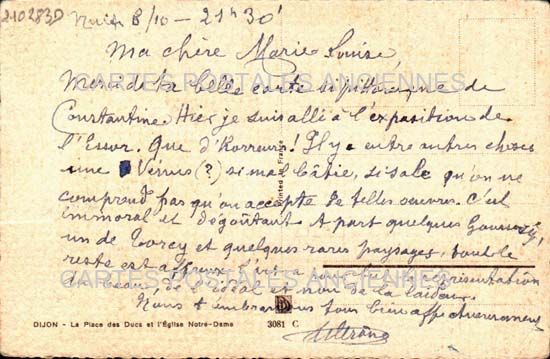 210283D
Nuits 8/10 - 21h 30'
Ma chère Marie Louise,
Merci de ta belle carte si pittoresque de
Constantine. Hier je suis allé à l'exposition de
l'Essor. Que d'horreurs! Il y a entre autres choses
une Vénus (?) si mal bâtie, si sale qu'on ne
comprend pas qu'on accepte de telles œuvres. C'est
immoral et dégoûtant. A part quelques
un de Torcy et quelques rares paysages, tout le
reste est affreux. L'art a représentation
du beau, de l'idéal et non de la laideur.
Nous t'embrassons tous bien affectueusement
CARTES POSTALES ANCIENNES
CARTES POSTALES ANCIENNES
Printed in France
DIJON - La Place des Ducs et l'Église Notre-Dame
3081 C